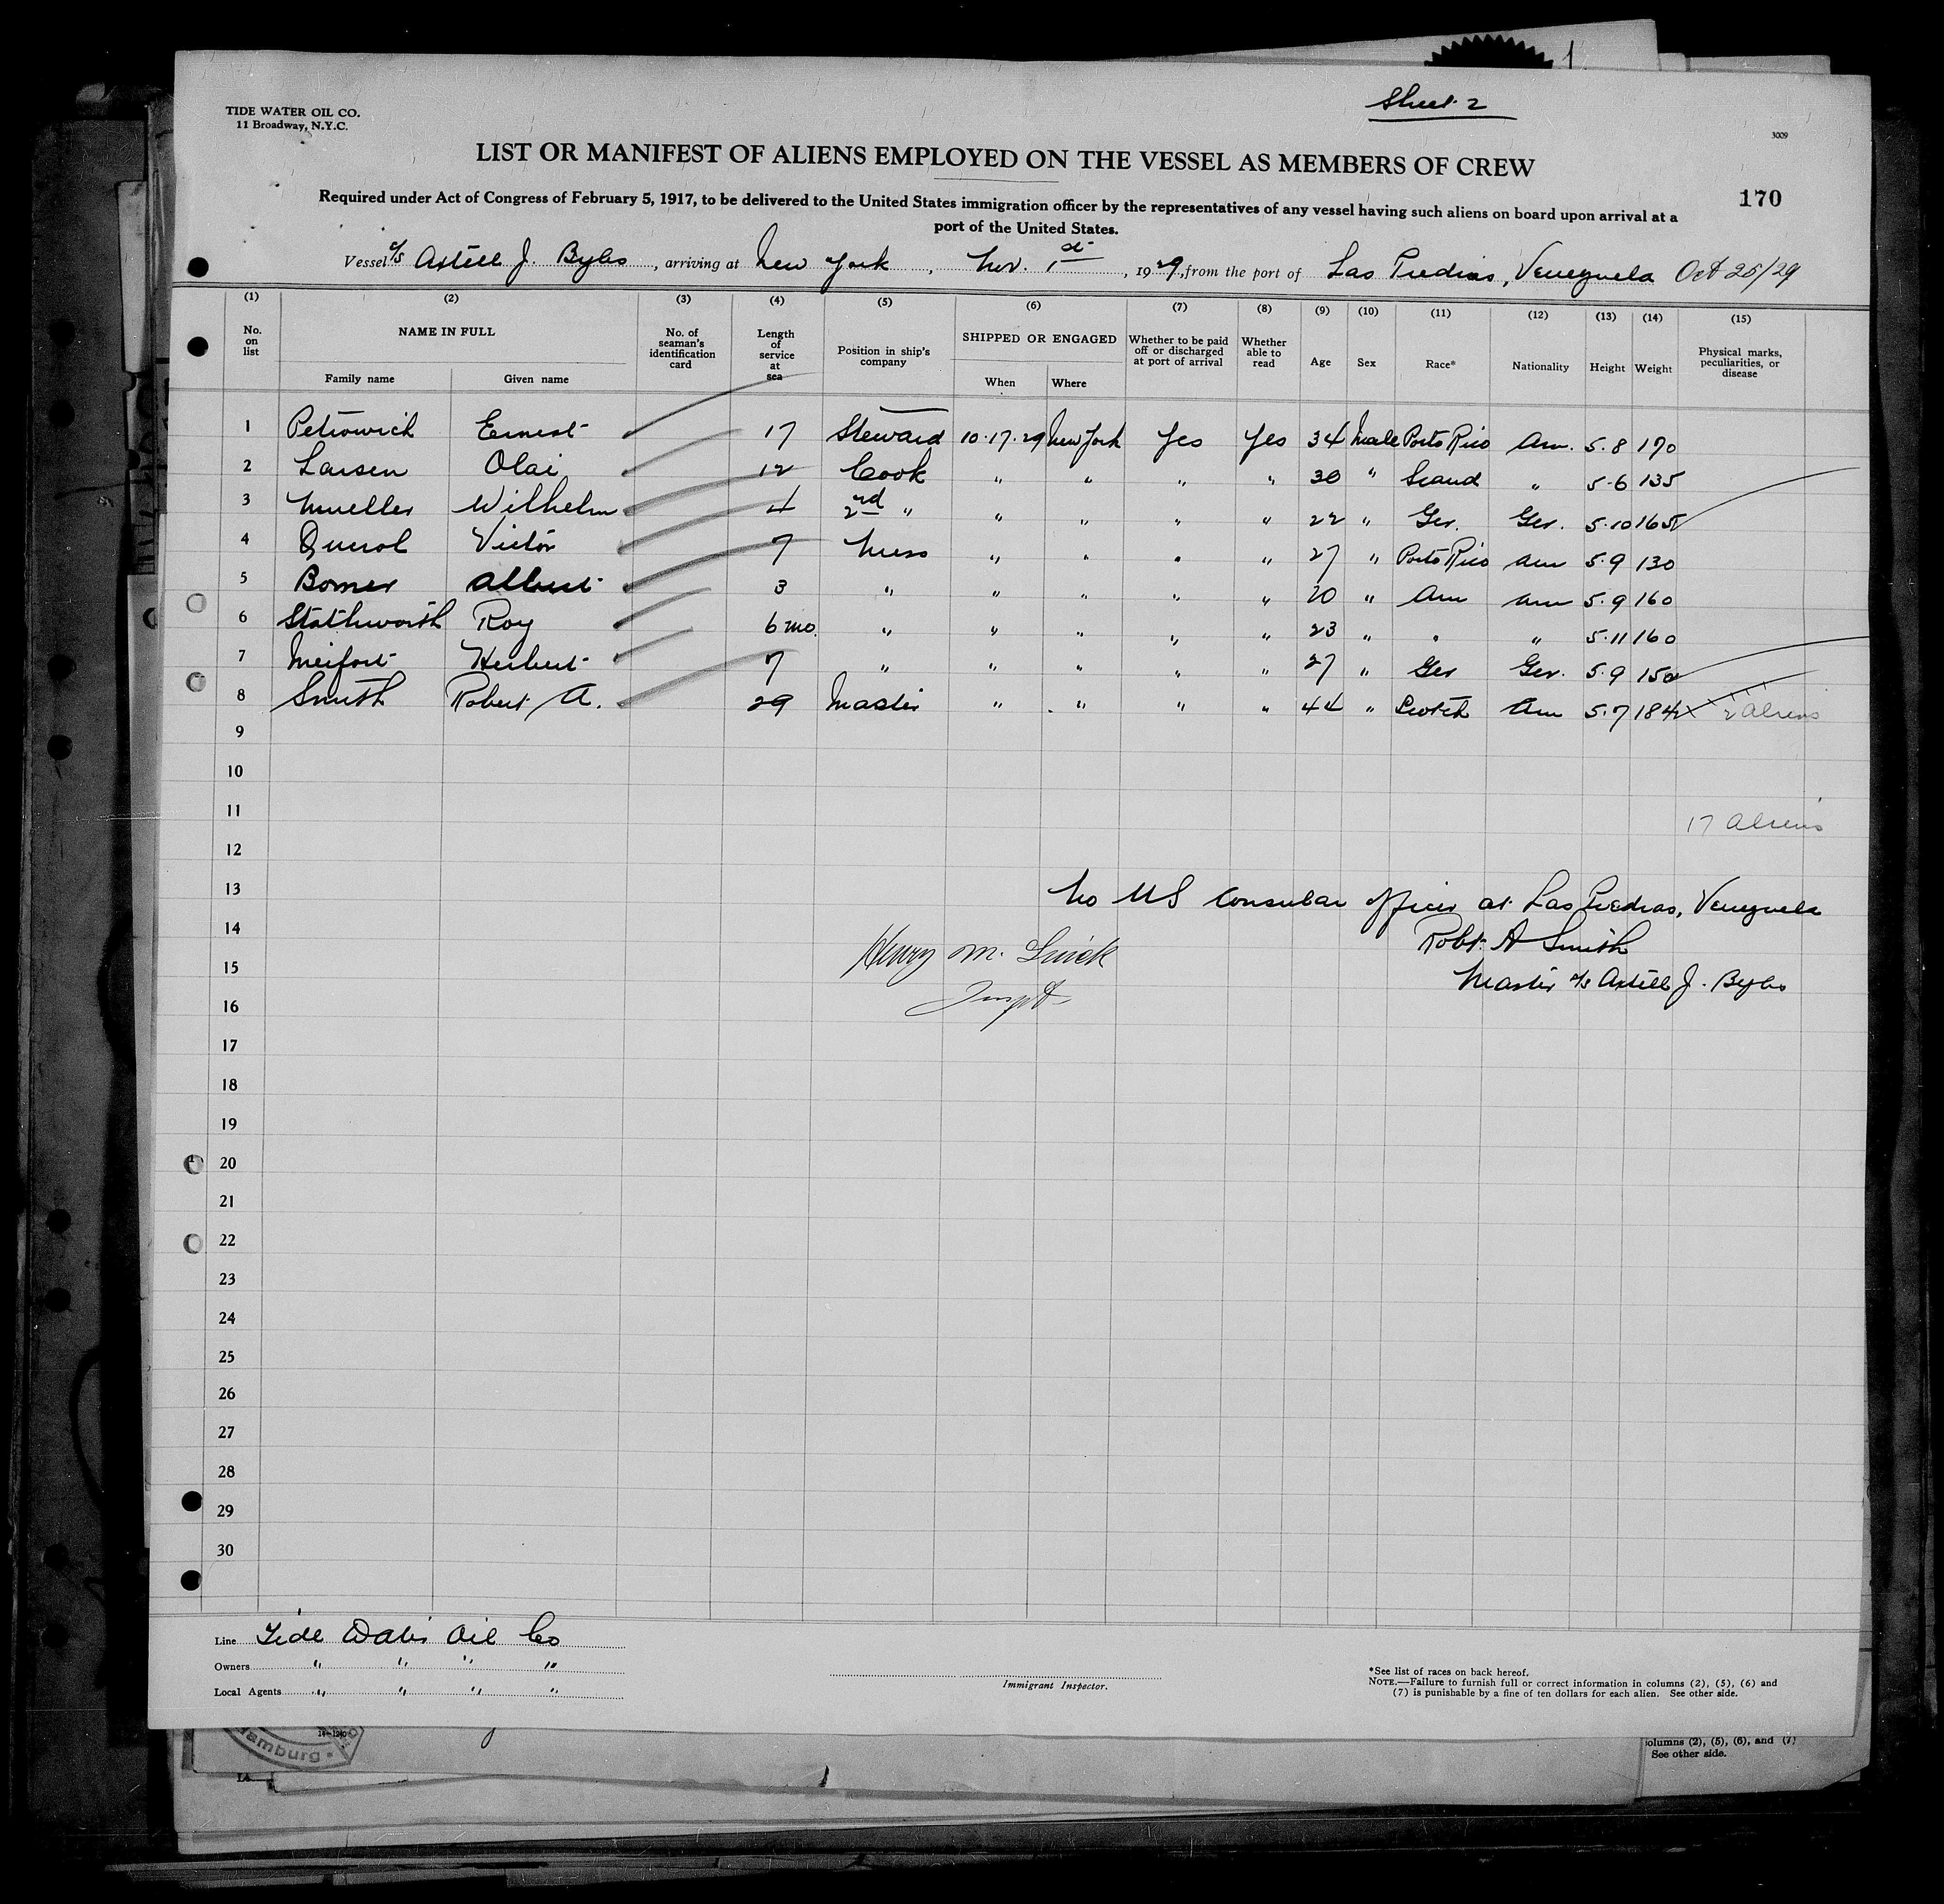 Sheet 2
TIDE WATER OIL CO.
11 Broadway, N.Y.C.
3009
LIST OR MANIFEST OF ALIENS EMPLOYED ON THE VESSEL AS MEMBERS OF CREW
170
Required under Act of Congress of February 5, 1917, to be delivered to the United States immigration officer by the representatives of any vessel having such aliens on board upon arrival at a
port of the United States.
Vessel S/S Axtell J. Byles, arriving at New York, Nov. 1st, 1929, from the port of Las Piedras, Venezuela Oct 25/29
(1) (2) (3) (4) (5) (6) (7) (8) (9) (10) (11) (12) (13) (14) (15)
No. on list NAME IN FULL Family name Given name No. of seaman's identification card Length of service at sea Position in ship's company SHIPPED OR ENGAGED When Where Whether to be paid off or discharged at port of arrival Whether able to read Age Sex Race* Nationality Height Weight Physical marks, peculiarities, or disease
1 Petrowich Ernest 17 Steward 10-17-29 New York Yes Yes 34 Male Porto Rico Am. 5.8 170
2 Larsen Olai 12 Cook " " " " 30 " Scand " 5.6 135
3 Mueller Wilhelm 4 2nd " " " " " 22 " Ger. Ger. 5.10 165
4 Querol Victor 7 Mess " " " " 27 " Porto Rico Am 5.9 130
5 Bomer Albert 3 " " " " " 20 " Am Am 5.9 160
6 Stathworth Roy 6 mo. " " " " " 23 " " " 5.11 160
7 Meifort Herbert 7 " " " " " 27 " Ger Ger. 5.9 150
8 Smith Robert A. 29 Master " " " " 44 " Scotch Am 5.7 184 x 2 aliens
9
10
11 17 aliens
12
13 No US Consular officer at Las Piedras, Venezuela
14 Robt. A Smith
15 Henry M. Master S/S Axtell J. Byles
16 Inspt
17
18
19
20
21
22
23
24
25
26
27
28
29
30
Line Tide Water Oil Co
Owners " " " "
Local Agents " " " "
Immigrant Inspector.
*See list of races on back hereof.
NOTE.—Failure to furnish full or correct information in columns (2), (5), (6) and
(7) is punishable by a fine of ten dollars for each alien. See other side.
14-1240
Hamburg
columns (2), (5), (6), and (7)
See other side.